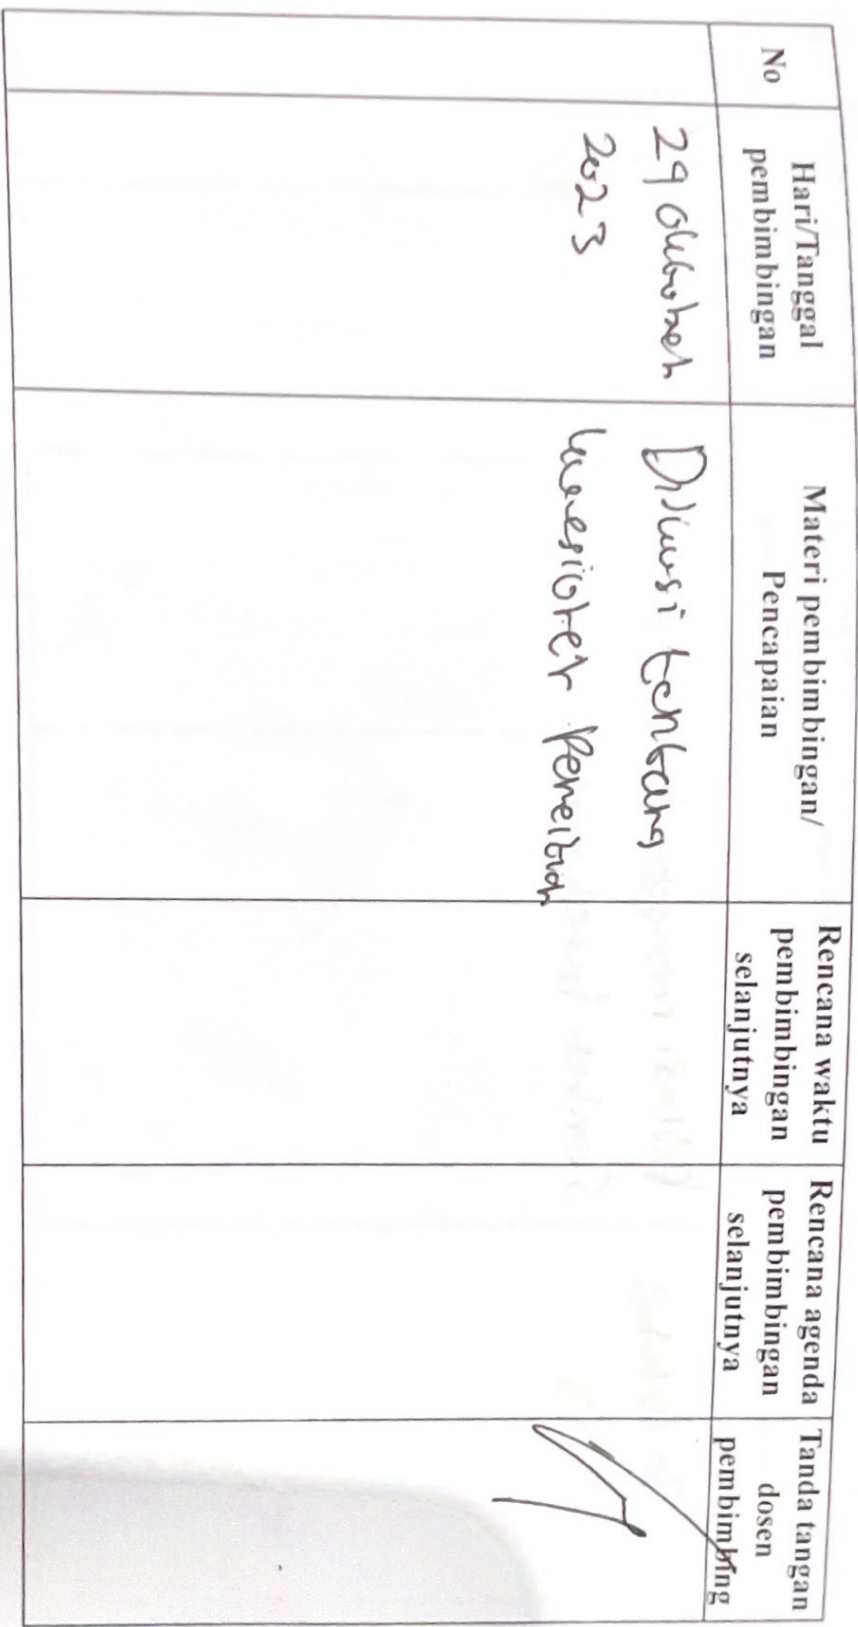 No
Hari/Tanggal
pembimbingan
Materi pembimbingan/
Pencapaian
Rencana waktu
pembimbingan
selanjutnya
Rencana agenda
pembimbingan
selanjutnya
Tanda tangan
dosen
pembimbing
29 Oktober
2023
Diskusi tentang
kuesioner Penelitian